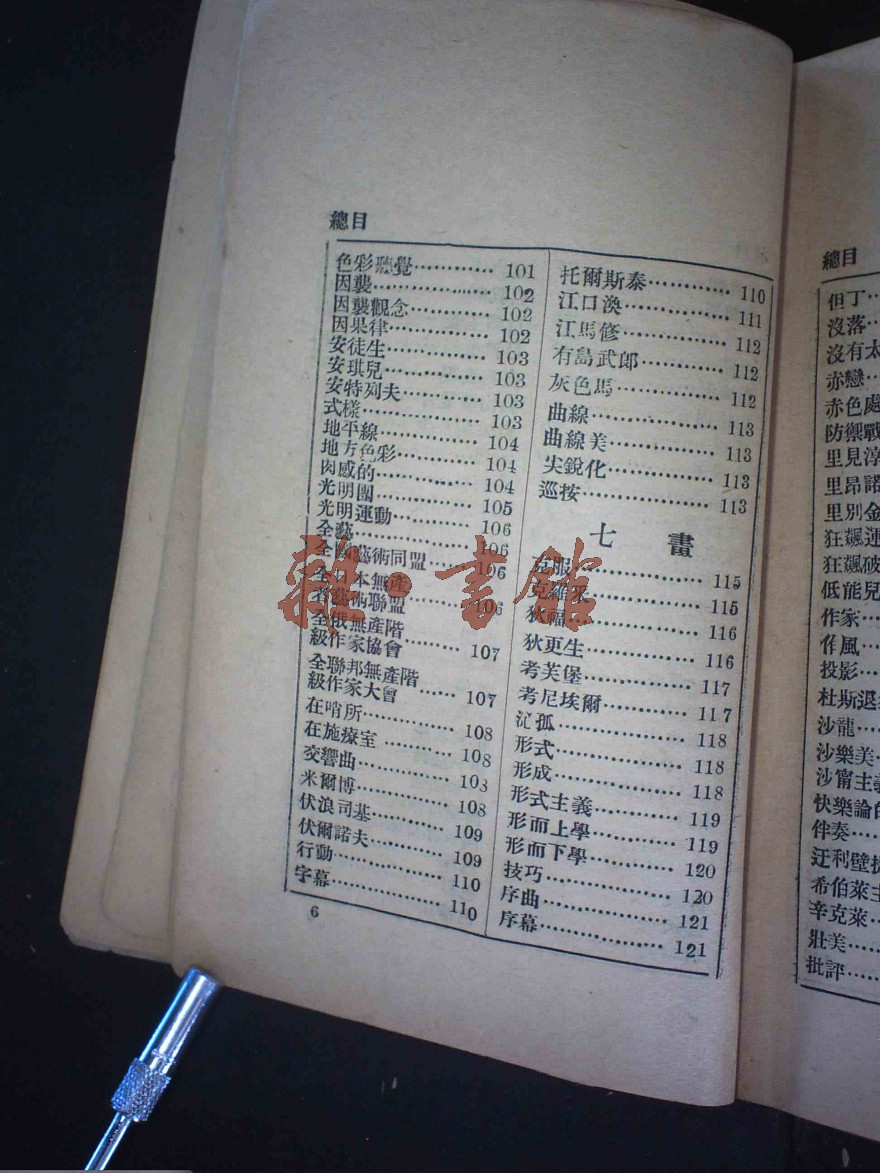 總目
色彩聽覺………… 101
因襲…………… 102
因襲觀念………… 102
因果律………… 102
安徒生………… 103
安琪兒………… 103
安特列夫………… 103
式樣…………… 103
地平線………… 104
地方色彩………… 104
肉感的………… 104
光明團………… 105
光明運動………… 106
全藝…………… 106
全國藝術同盟…… 106
全日本無產
者藝術聯盟……… 106
全俄無產階
級作家協會……… 107
全聯邦無產階
級作家大會…… 107
在哨所………… 108
在施療室………… 108
交響曲………… 108
米爾博………… 108
伏浪司基………… 109
伏爾諾夫………… 109
行動…………… 110
字幕…………… 110
托爾斯泰………… 110
江口渙………… 111
江馬修………… 112
有島武郎………… 112
灰色馬………… 112
曲線…………… 113
曲線美………… 113
尖銳化………… 113
巡按…………… 113
七 畫
克服…………… 115
克羅采………… 115
狄福…………… 116
狄更生………… 116
考芙堡………… 117
考尼埃爾………… 117
沉孤…………… 118
形式…………… 118
形成…………… 118
形式主義………… 119
形而上學………… 119
形而下學………… 120
技巧…………… 120
序曲…………… 121
序幕…………… 121
6
總目
但丁…
沒落…
沒有太
赤戀…
赤色處
防禦戰
里見淳
里昂諾
里別金
狂飆運
狂飆破
低能兒
作家…
作風…
投影…
杜斯退
沙龍…
沙樂美…
沙甯主義
快樂論的
伴奏…
迂利壁
希伯萊主
辛克萊…
壯美…
批評…
雜·書館